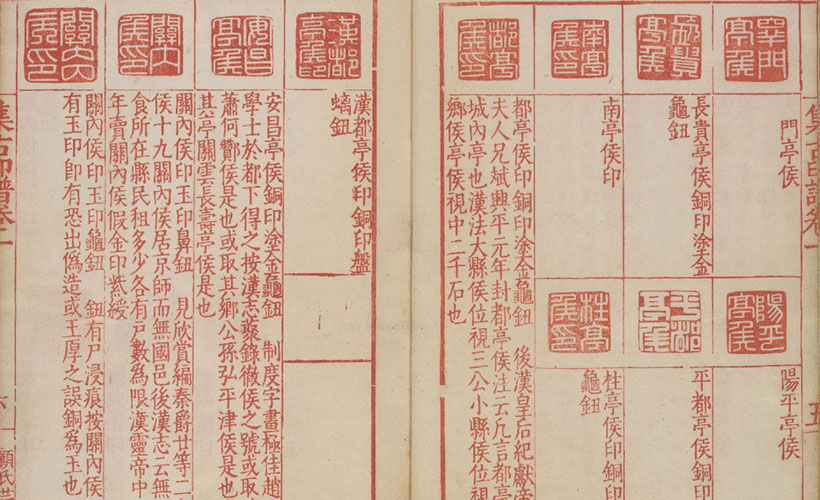 集古印譜卷一
五
門亭侯
門亭侯
長貴亭侯銅印塗金
龜鈕
南亭侯印
南亭侯印
都亭侯印
都亭侯印銅印塗金龜鈕 後漢皇后紀獻帝
夫人兄斌興平元年封都亭侯注云凡言都亭
城內亭也漢法大縣侯位視三公小縣侯位視
鄉侯亭侯視中二千石也
陽平亭侯
陽平亭侯
平都亭侯
平都亭侯銅印
柱亭侯印
柱亭侯印銅印
龜鈕
漢都亭侯印
漢都亭侯印銅印盤
螭鈕
安昌亭侯
安昌亭侯銅印塗金龜鈕 制度字畫極佳趙
學士於都下得之按漢志聚錄徹侯之號或取
蕭何酇侯是也或取其鄉公孫弘平津侯是也
其亭關雲長壽亭侯是也
關內侯印
關內侯印玉印鼻鈕 見欣賞編秦爵廿等二
侯十九關內侯居京師而無國邑後漢志云無
食所在縣民租多少各有戶數為限漢靈帝中
年賣關內侯假金印紫綬
關內侯印
關內侯印玉印龜鈕 鈕有尸浸痕按關內侯
有玉印即有恐出偽造或王厚之誤銅為玉也
集古印譜卷一
六
顧氏芸